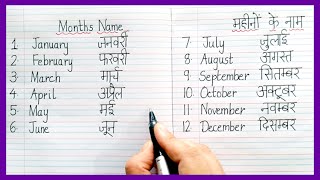 Months Name
1. January जनवरी
2. February फरवरी
3. March मार्च
4. April अप्रैल
5. May मई
6. June जून
महीनों के नाम
7. July जुलाई
8. August अगस्त
9. September सितम्बर
10. October अक्टूबर
11. November नवम्बर
12. December दिसम्बर